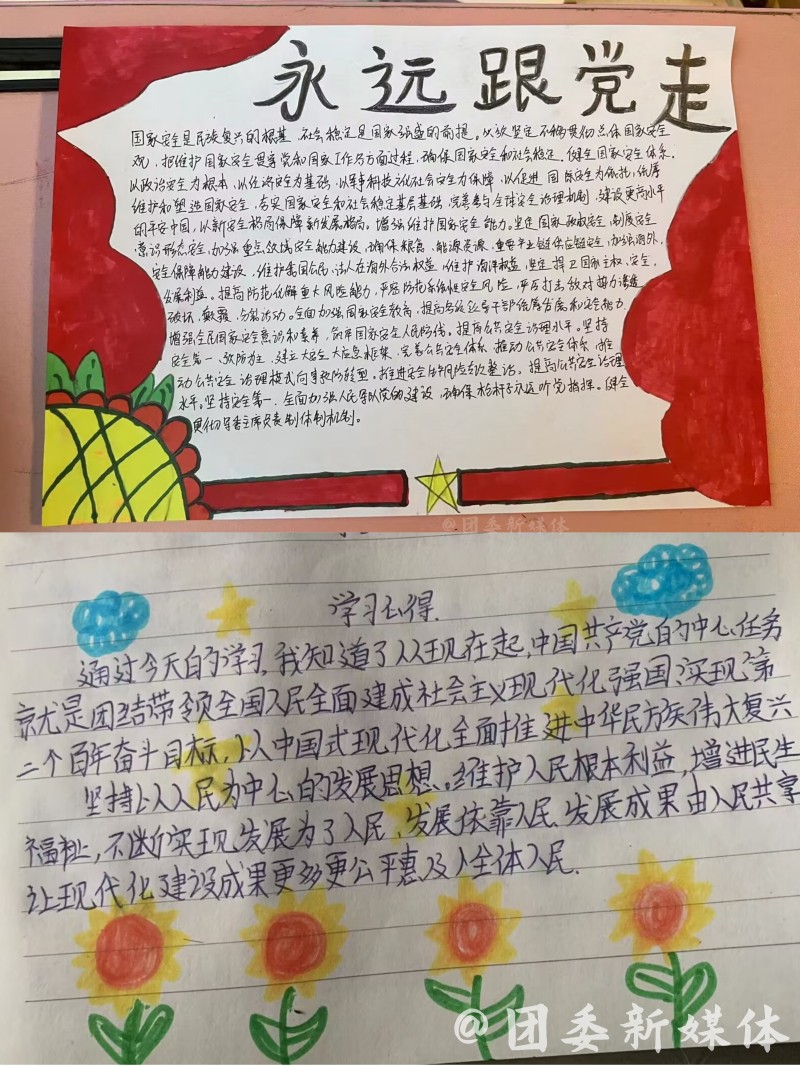 永远跟党走
国家安全是民族复兴的根基,社会稳定是国家强盛的前提。必须坚定不移贯彻总体国家安全
观,把维护国家安全贯穿党和国家工作各方面过程,确保国家安全和社会稳定。健全国家安全体系。
以政治安全为根本,以经济安全为基础,以军事科技文化社会安全为保障,以促进国际安全为依托,统筹
维护和塑造国家安全,夯实国家安全和社会稳定基层基础,完善参与全球安全治理机制,建设更高水平
的平安中国,以新安全格局保障新发展格局。增强维护国家安全能力。坚定国家政权安全,制度安全
意识形态安全,加强重点领域安全能力建设,确保粮食、能源资源、重要产业链供应链安全,加强海外,
安全保障能力建设,维护我国公民、法人在海外合法权益,维护海洋权益,坚定捍卫国家主权、安全、
发展利益。提高防范化解重大风险能力,严密防范系统性安全风险,严厉打击敌对势力渗透
破坏、颠覆、分裂活动。全面加强国家安全教育,提高各级领导干部统筹发展和安全能力,
增强全民国家安全意识和素养,筑牢国家安全人民防线。提高公共安全治理水平。坚持
安全第一、预防为主,建立大安全大应急框架,完善公共安全体系,推动公共安全体系,推
动公共安全治理模式向事前预防转型。推进安全生产风险专项整治。提高公共安全治理
水平。坚持安全第一,全面加强人民军队党的建设,确保枪杆子永远听党指挥。健全
贯彻军委主席负责制体制机制。
@团委新媒体
学习心得.
通过今天的学习,我知道了从现在起,中国共产党的中心任务
就是团结带领全国人民全面建成社会主义现代化强国、实现第
二个百年奋斗目标,以中国式现代化全面推进中华民族伟大复兴
坚持以人民为中心的发展思想。维护人民根本利益,增进民生
福祉,不断实现发展为了人民、发展依靠人民、发展成果由人民共享
让现代化建设成果更多更公平惠及全体人民.
@团委新媒体